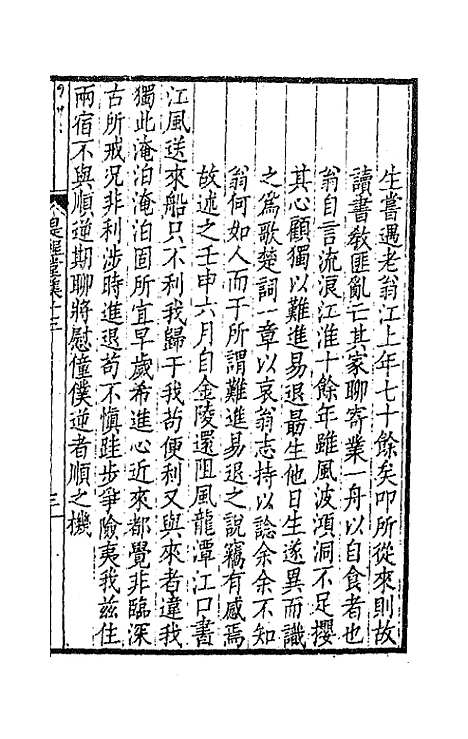 生嘗遇老翁江上年七十餘矣叩所從來則故
讀書教匪亂亡其家聊寄業一舟以自食者也
翁自言流浪江淮十餘年雖風波澒洞不足攖
其心顧獨以難進易退最生他日生遂異而識
之爲歌楚詞一章以哀翁志持以諗余余不知
翁何如人而于所謂難進易退之說竊有感焉
故述之壬申六月自金陵還阻風龍潭江口書
江風送來船只不利我歸于我苟便利又與來者違我
獨此淹泊淹泊固所宜早歲希進心近來都覺非臨深
古所戒況非利涉時進退苟不愼跬步爭險夷我茲住
兩宿不與順逆期聊將慰僮僕逆者順之機
堂集十三
三